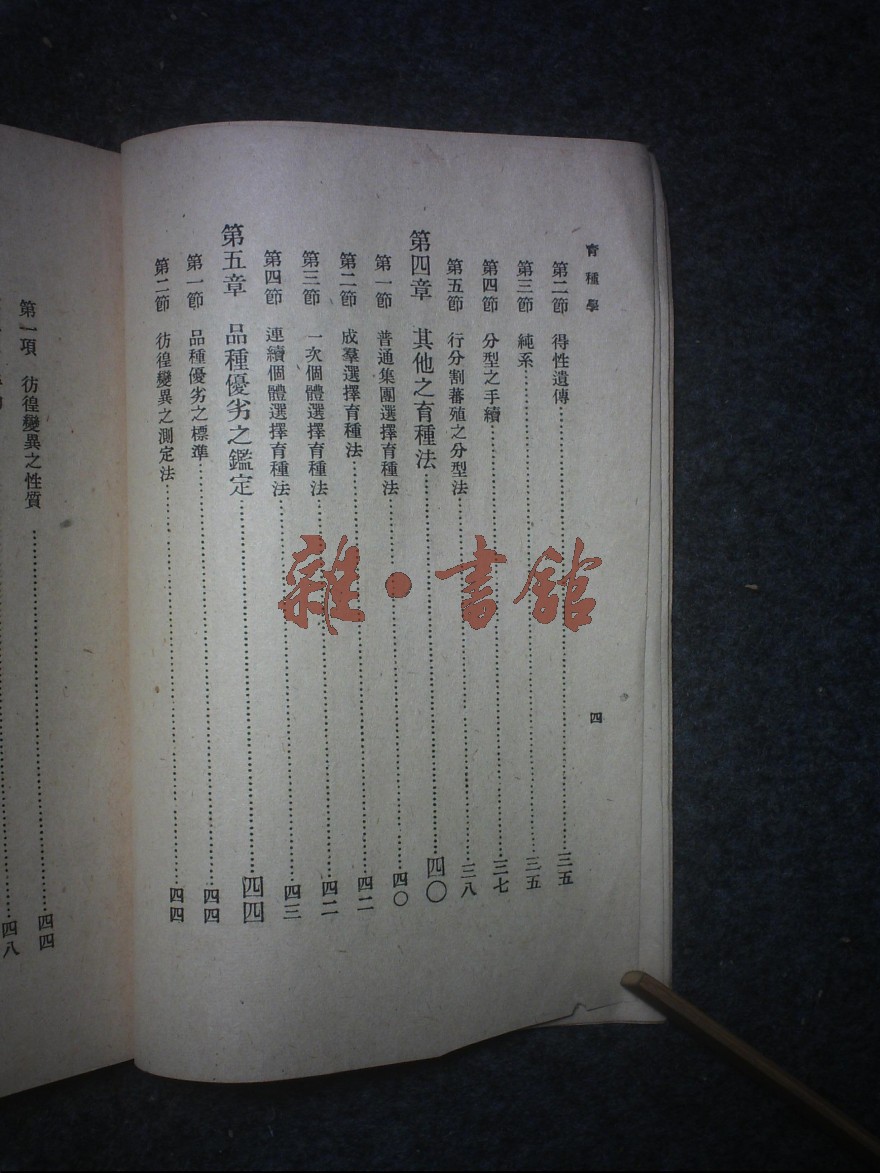 育種學
四
第二節 得性遺傳……三五
第三節 純系……三五
第四節 分型之手續……三七
第五節 行分割蕃殖之分型法……三八
第四章 其他之育種法……四〇
第一節 普通集團選擇育種法……四〇
第二節 成羣選擇育種法……四二
第三節 一次個體選擇育種法……四二
第四節 連續個體選擇育種法……四三
第五章 品種優劣之鑑定……四四
第一節 品種優劣之標準……四四
第二節 彷徨變異之測定法……四四
第一項 彷徨變異之性質……四四
四八
雜·書館